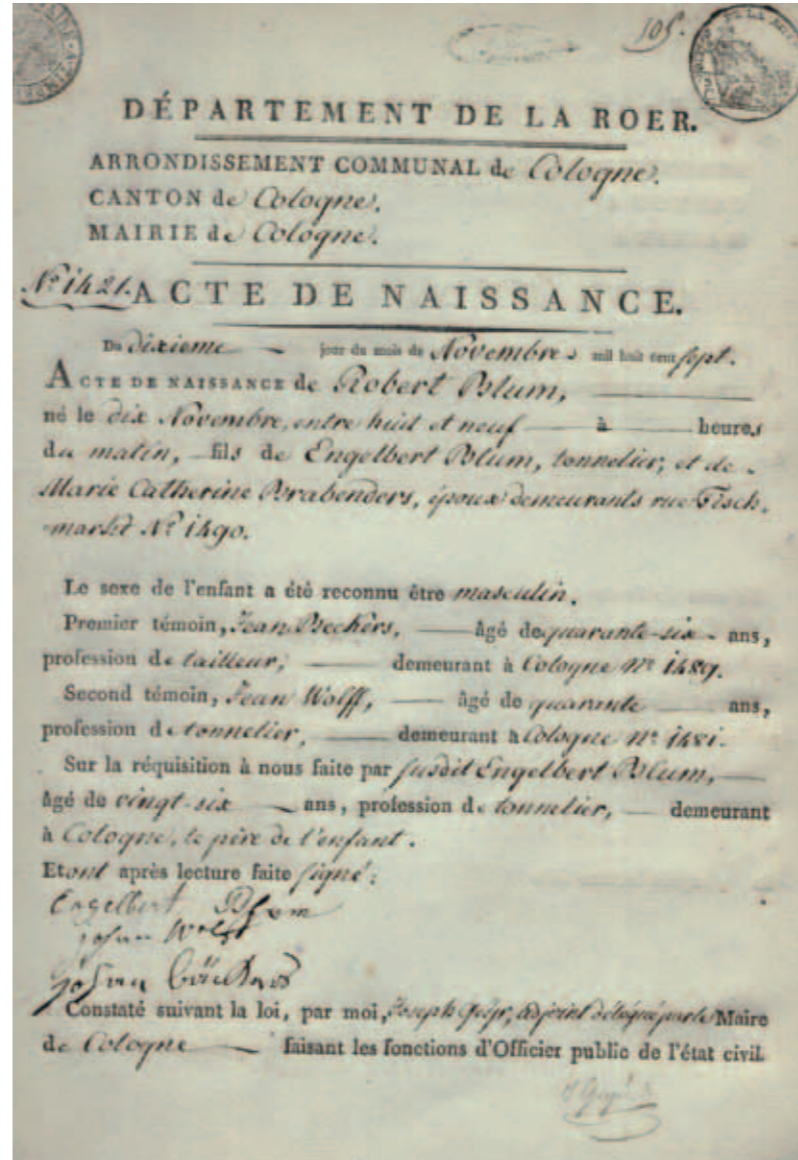 105.
DÉPARTEMENT DE LA ROER.
ARRONDISSEMENT COMMUNAL de Cologne.
CANTON de Cologne.
MAIRIE de Cologne.
N.º 1421. ACTE DE NAISSANCE.
Du dixieme jour du mois de Novembre mil huit cent sept.
ACTE DE NAISSANCE de Robert Blum,
né le dix Novembre, entre huit et neuf à heures
du matin, fils de Engelbert Blum, tonnelier, et de
Marie Catherine Brabenders, époux demeurants rue Fisch-
markt N.º 1490.
Le sexe de l'enfant a été reconnu être masculin.
Premier témoin, Jean Beckers, âgé de quarante-six ans,
profession de tailleur, demeurant à Cologne n.º 1489.
Second témoin, Jean Wolff, âgé de quarante ans,
profession de tonnelier, demeurant à Cologne n.º 1481.
Sur la réquisition à nous faite par susdit Engelbert Blum,
âgé de vingt-six ans, profession de tonnelier, demeurant
à Cologne, le père de l'enfant.
Et ont après lecture faite signé:
Engelbert Blum
Johan Wolff
Johan
Constaté suivant la loi, par moi, Joseph adjoint délégué par le Maire
de Cologne faisant les fonctions d'Officier public de l'état civil.